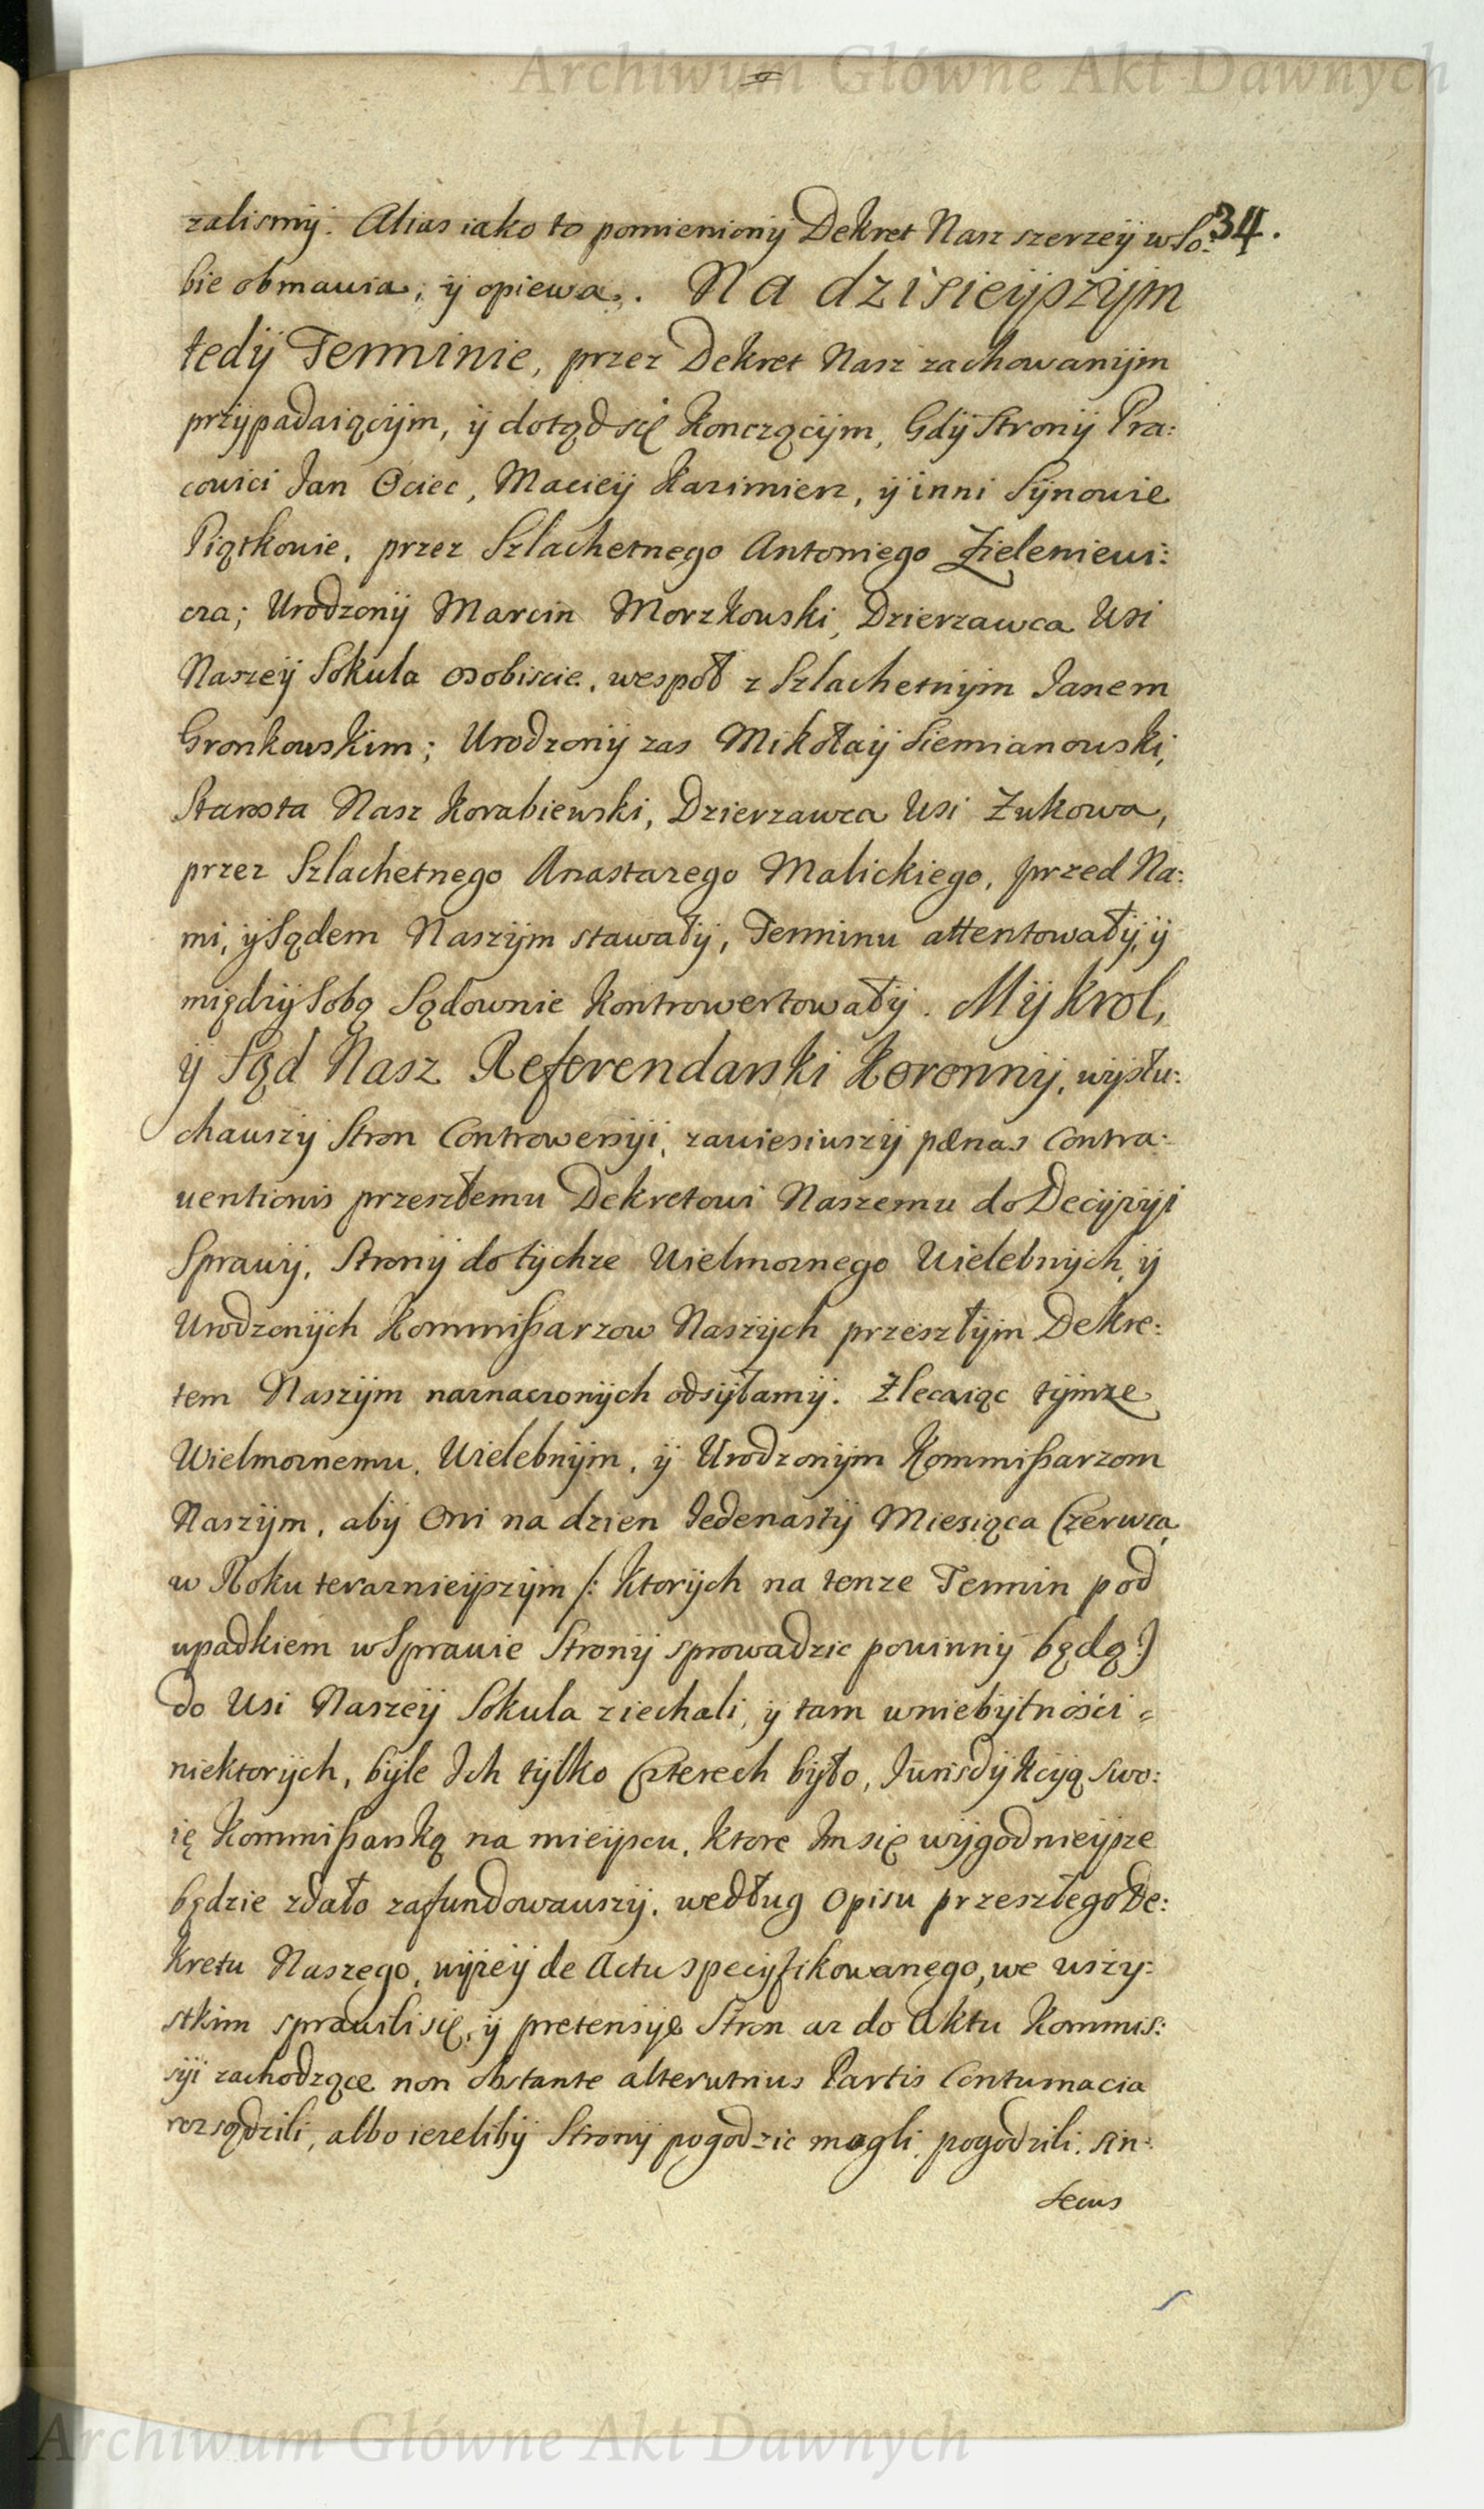 Archiwum Główne Akt Dawnych
34.
zalismÿ. Alias iako to pomienionÿ Dekret Nasz szerzeÿ w So:
bie obmawia, ÿ opiewa. Na dzisieÿszÿm
tedÿ Terminie, przez Dekret Nasz zachowanÿm
przÿpadaiącÿm, ÿ dotąd się Konczącÿm, Gdÿ Stronÿ Pra:
cowici Jan Ociec, Macieÿ Kazimierz, ÿ inni Sÿnowie
Piątkowie, przez Szlachetnego Antoniego Zieleniewi:
cza; Urodzonÿ Marcin Morzkowski, Dzierzawca Wsi
Naszeÿ Sokula osobiscie, wespoł z Szlachetnÿm Janem
Gronkowskim; Urodzonÿ zas Mikołaÿ Siemianowski,
Starosta Nasz Korabiewski, Dzierzawca Wsi Zukowa,
przez Szlachetnego Anastazego Malickiego, przed Na:
mi, ÿ Sądem Naszÿm stawałÿ, Terminu attentowałÿ, ÿ
międzÿ Sobą Sądownie Kontrowertowałÿ. Mÿ Krol,
ÿ Sąd Nasz Referendarski Koronnÿ, wÿsłu:
chawszÿ Stron Controwersÿi, zawiesiwszÿ pœnas Contra:
ventionis przeszłemu Dekretowi Naszemu do Decÿzÿi
Sprawÿ, Stronÿ do tÿchze Wielmoznego Wielebnÿch, ÿ
Urodzonÿch Kommißarzow Naszÿch przeszłÿm Dekre:
tem Naszÿm naznaczonÿch odsÿłamÿ. Zlecaiąc tÿmze
Wielmoznemu, Wielebnÿm, ÿ Urodzonÿm Kommißarzom
Naszÿm, abÿ Oni na dzien Jedenastÿ Miesiąca Czerwca
w Roku terazniejszÿm /: Ktorÿch na tenze Termin pod
upadkiem w Sprawie Stronÿ sprowadzic powinnÿ będą :/
do Wsi Naszeÿ Sokula ziechali, ÿ tam w niebÿtności
niektorÿch, bÿle Ich tÿlko Czterech bÿło, Jurisdÿkcÿą swo:
ię Kommißarską na mieÿscu, Ktore Im się wÿgodnieÿsze
będzie zdało zafundowawszÿ, według Opisu przeszłego De:
kretu Naszego, wÿzeÿ de Actu specÿfikowanego, we wszÿ:
stkim sprawili się, ÿ pretensÿe Stron az do Aktu Kommis:
sÿi zachodzące non obstante alterutrius Partis Contumacia
rozsądzili, albo iezelibÿ Stronÿ pogodzic mogli, pogodzili. Sin:
secus
Archiwum Główne Akt Dawnych